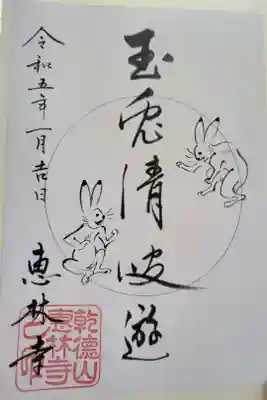 玉兎清波遊
令和五年一月吉日
恵林寺
乾徳山
恵林寺
之印